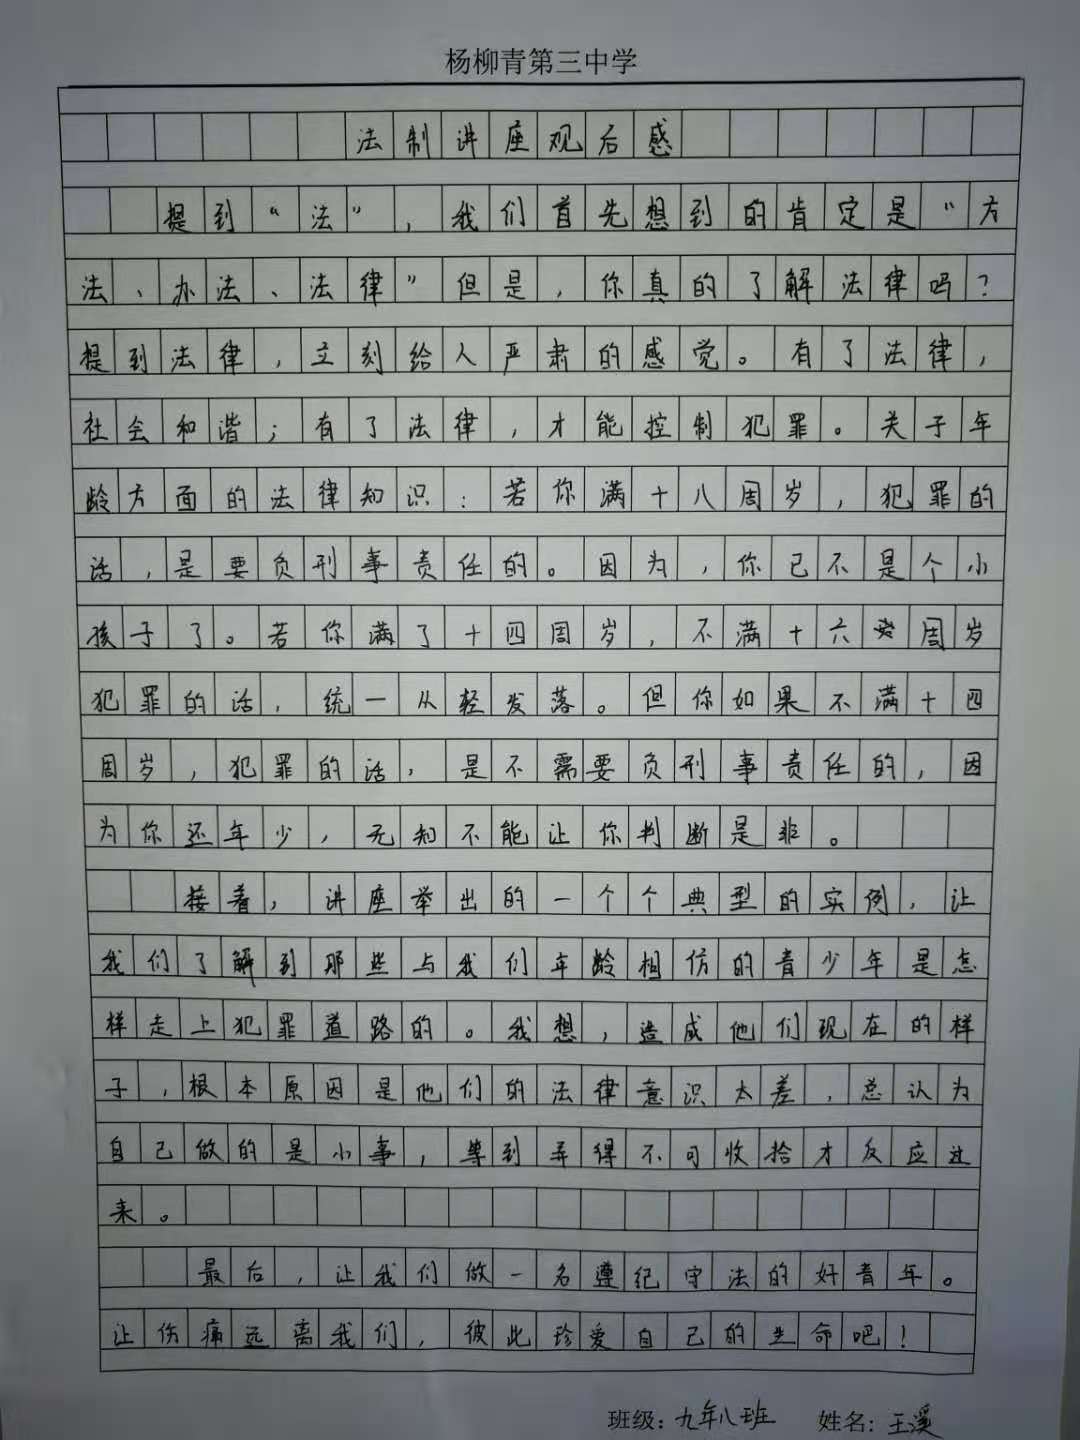 杨柳青第三中学
法制讲座观后感
提到“法”，我们首先想到的肯定是“方
法、办法、法律”但是，你真的了解法律吗？
提到法律，立刻给人严肃的感觉。有了法律，
社会和谐；有了法律，才能控制犯罪。关于年
龄方面的法律知识：若你满十八周岁，犯罪的
话，是要负刑事责任的。因为，你已不是个小
孩子了。若你满了十四周岁，不满十六周岁
犯罪的话，统一从轻发落。但你如果不满十四
周岁，犯罪的话，是不需要负刑事责任的，因
为你还年少，无知不能让你判断是非。
接着，讲座举出的一个个典型的实例，让
我们了解到那些与我们年龄相仿的青少年是怎
样走上犯罪道路的。我想，造成他们现在的样
子，根本原因是他们的法律意识太差，总认为
自己做的是小事，等到弄得不可收拾才反应过
来。
最后，让我们做一名遵纪守法的好青年。
让伤痛远离我们，彼此珍爱自己的生命吧！
班级：九年八班 姓名：王溪